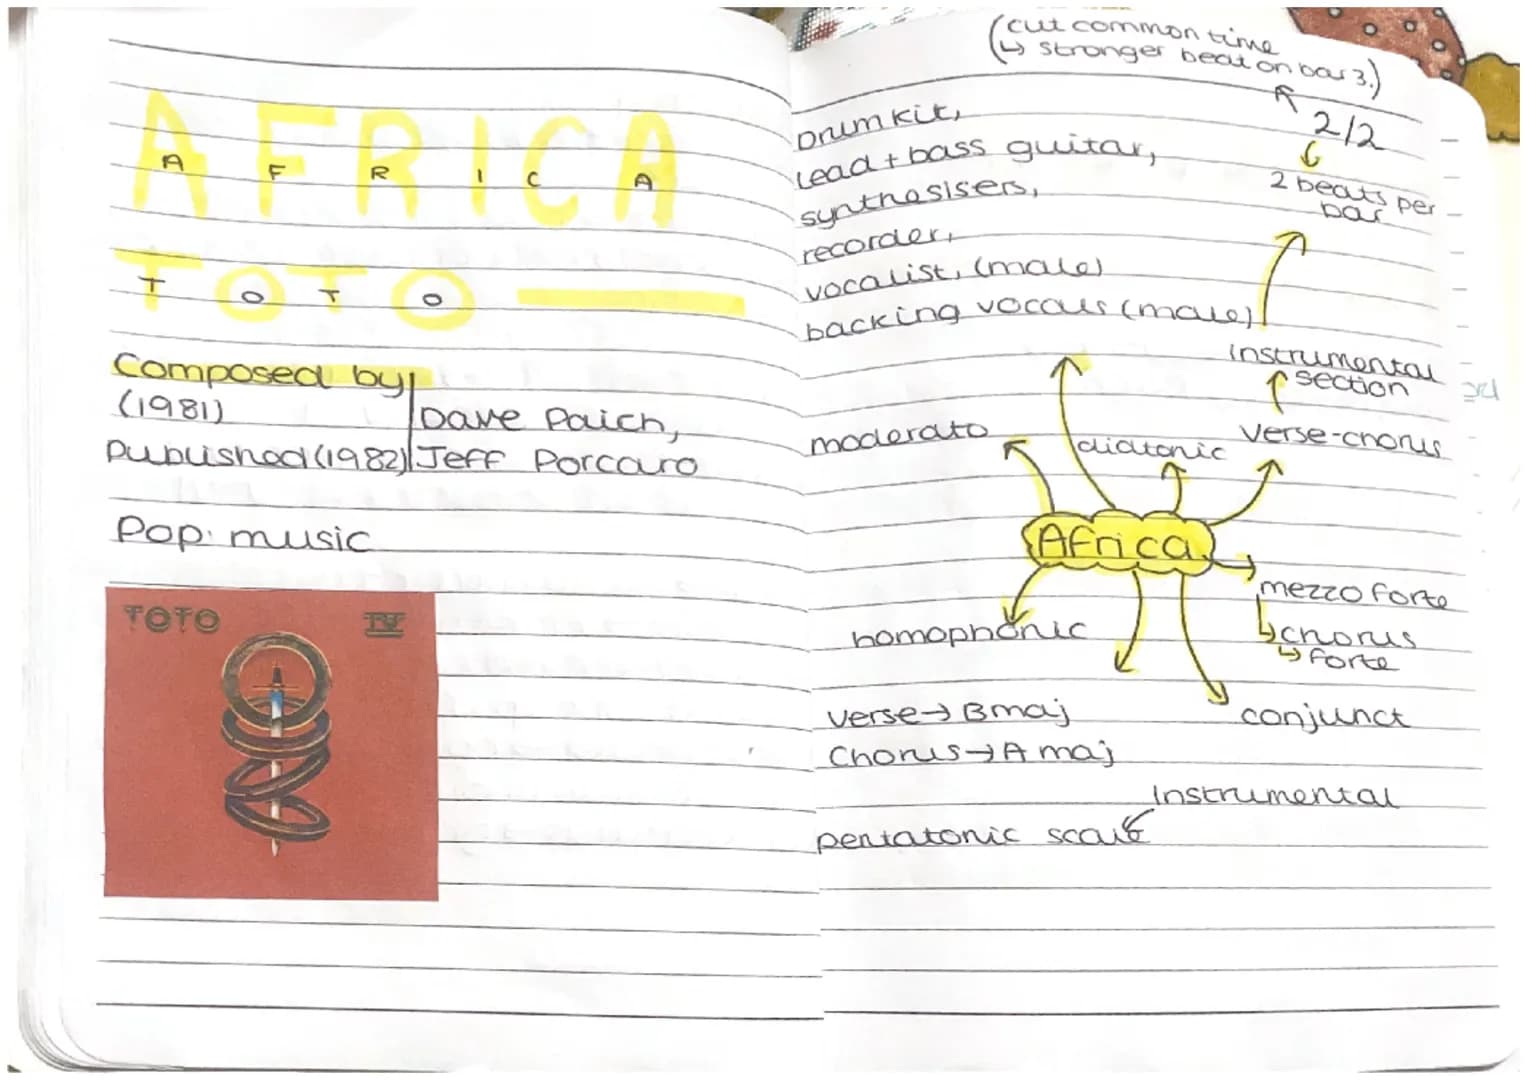 AFRICA
A F R I C A
TOTO
T O T O
Composed by
(1981)
Dave Paich,
Published (1982)
Jeff Porcaro
Pop music
TOTO IV
(cut common time
↳ stronger beat on bar 3.)
2/2
2 beats per
bar
Drum kit,
Lead + bass guitar,
synthesisers,
recorder,
vocalist, (male)
backing vocals (male)
instrumental
section
verse-chorus
moderato
diatonic
Africa
mezzo forte
↳ chorus
↳ forte
homophonic
verse → B maj
Chorus → A maj
conjunct
Instrumental
pentatonic scale